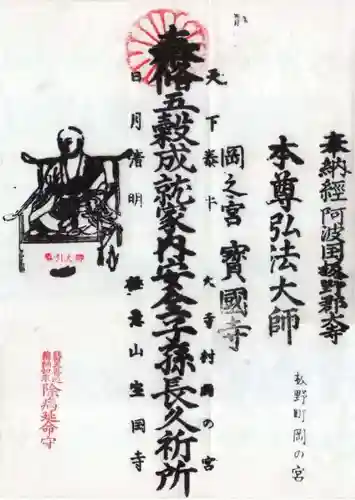 奉納經 阿波国板野郡大寺
本尊弘法大師
岡之宮 寳國寺
天下泰平 大寺村岡の宮
奉修五穀成就家内安全子孫長久祈所
日月清明 亀山宝国寺
板野町岡の宮
除病延命守